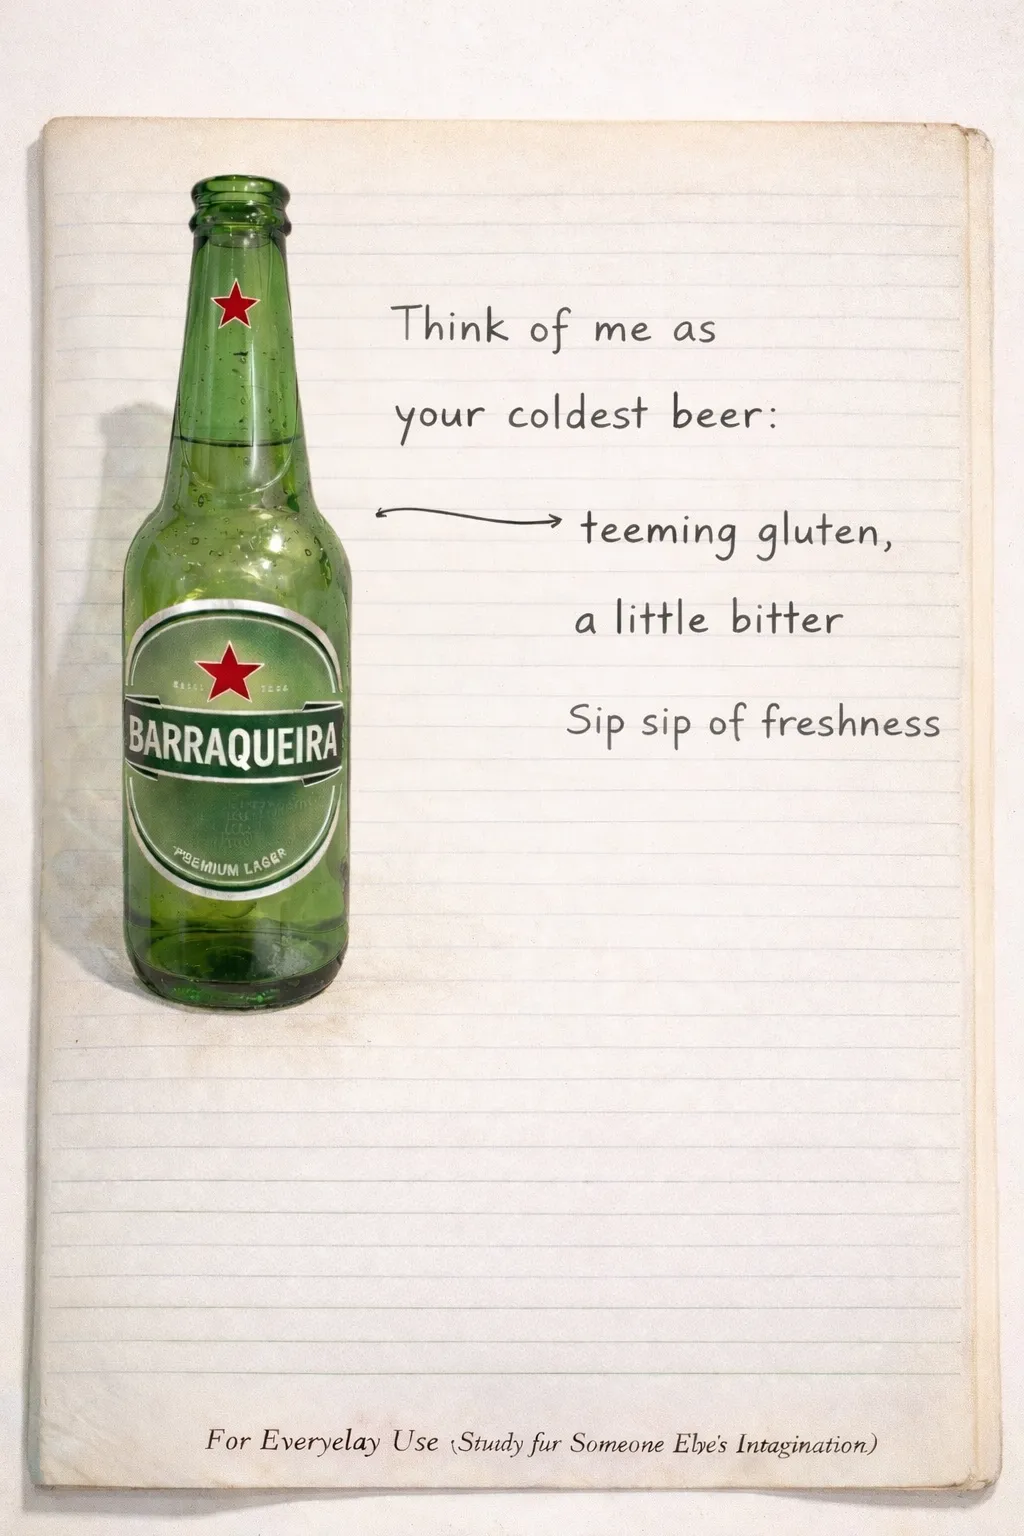 Think of me as
your coldest beer:
teeming gluten,
a little bitter
Sip sip of freshness
BARRAQUEIRA
PREMIUM LAGER
For Everyelay Use (Stuıdy fur Someone Elye's Intagination)